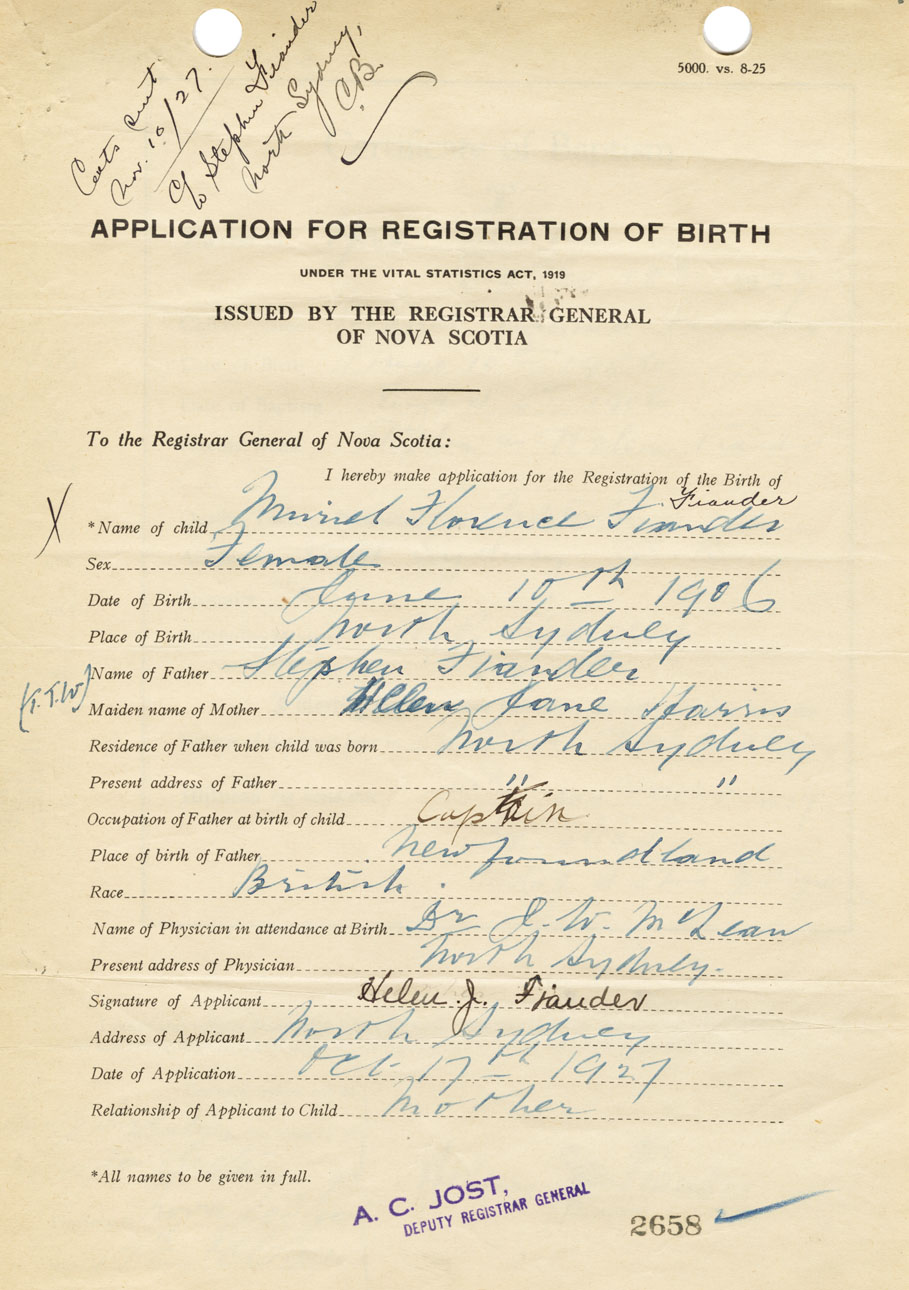 Certs sent
Nov. 10/27.
c/o Stephen Fiander
North Sydney,
C.B.
5000. vs. 8-25
APPLICATION FOR REGISTRATION OF BIRTH
UNDER THE VITAL STATISTICS ACT, 1919
ISSUED BY THE REGISTRAR GENERAL
OF NOVA SCOTIA
To the Registrar General of Nova Scotia:
I hereby make application for the Registration of the Birth of
Fiander
X *Name of child Muriel Florence Fiander
Sex Female
Date of Birth June 10th 1906
Place of Birth North Sydney
Name of Father Stephen Fiander
(T.T.W.) Maiden name of Mother Helen Jane Harris
Residence of Father when child was born North Sydney
Present address of Father " "
Occupation of Father at birth of child Captain
Place of birth of Father Newfoundland
Race British.
Name of Physician in attendance at Birth Dr J. W. McLean
Present address of Physician North Sydney.
Signature of Applicant Helen. J. Fiander
Address of Applicant North Sydney
Date of Application Oct. 17th 1927
Relationship of Applicant to Child Mother
*All names to be given in full.
A. C. JOST,
DEPUTY REGISTRAR GENERAL
2658